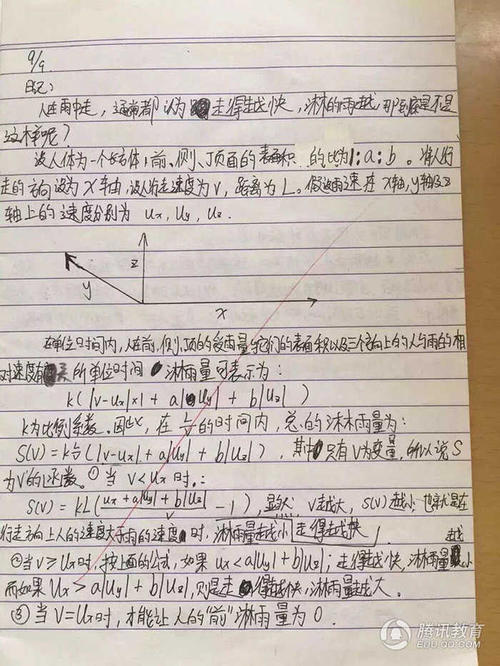 9/9
日记:
人在雨中走，通常都认为走得越快，淋的雨越，那到底是不是
这样呢？
设人体为一个长方体，前、侧、顶面的表面积的比为1:a:b。将人行
走的方向设为x轴，设人行走速度为v，距离为L。假设雨速在x轴,y轴及z
轴上的速度分别为 ux, uy, uz.
z
y
x
在单位时间内，人在前，侧，顶的受雨量与它们的表面积以及三个方向上的人与雨的相
对速度有关 所单位时间 淋雨量可表示为:
k(|v-ux|x1 + a|uy| + b|uz|)
k为比例系数。因此，在 L/v 的时间内，总的淋雨量为:
S(v)=k L/v (|v-ux| + a|uy| + b|uz|)，其中只有v为变量，所以说S
为v的函数。①当 v<ux 时.:
S(v) = kL( (ux + a|uy| + b|uz|)/v -1 )，显然: v越大，S(v)越小；也就是在
行走方向上人的速度小于雨的速度时，淋雨量越小 走得越快
②当v≥ux时，按上面的公式，如果 ux<a|uy|+b|uz|；走得越快，淋雨量越小
而如果 ux>a|uy|+b|uz|,则是走得越快，淋雨量越大。
③当v=ux时，才能让人的"前"淋雨量为0.
腾讯教育
EDU.QQ.COM